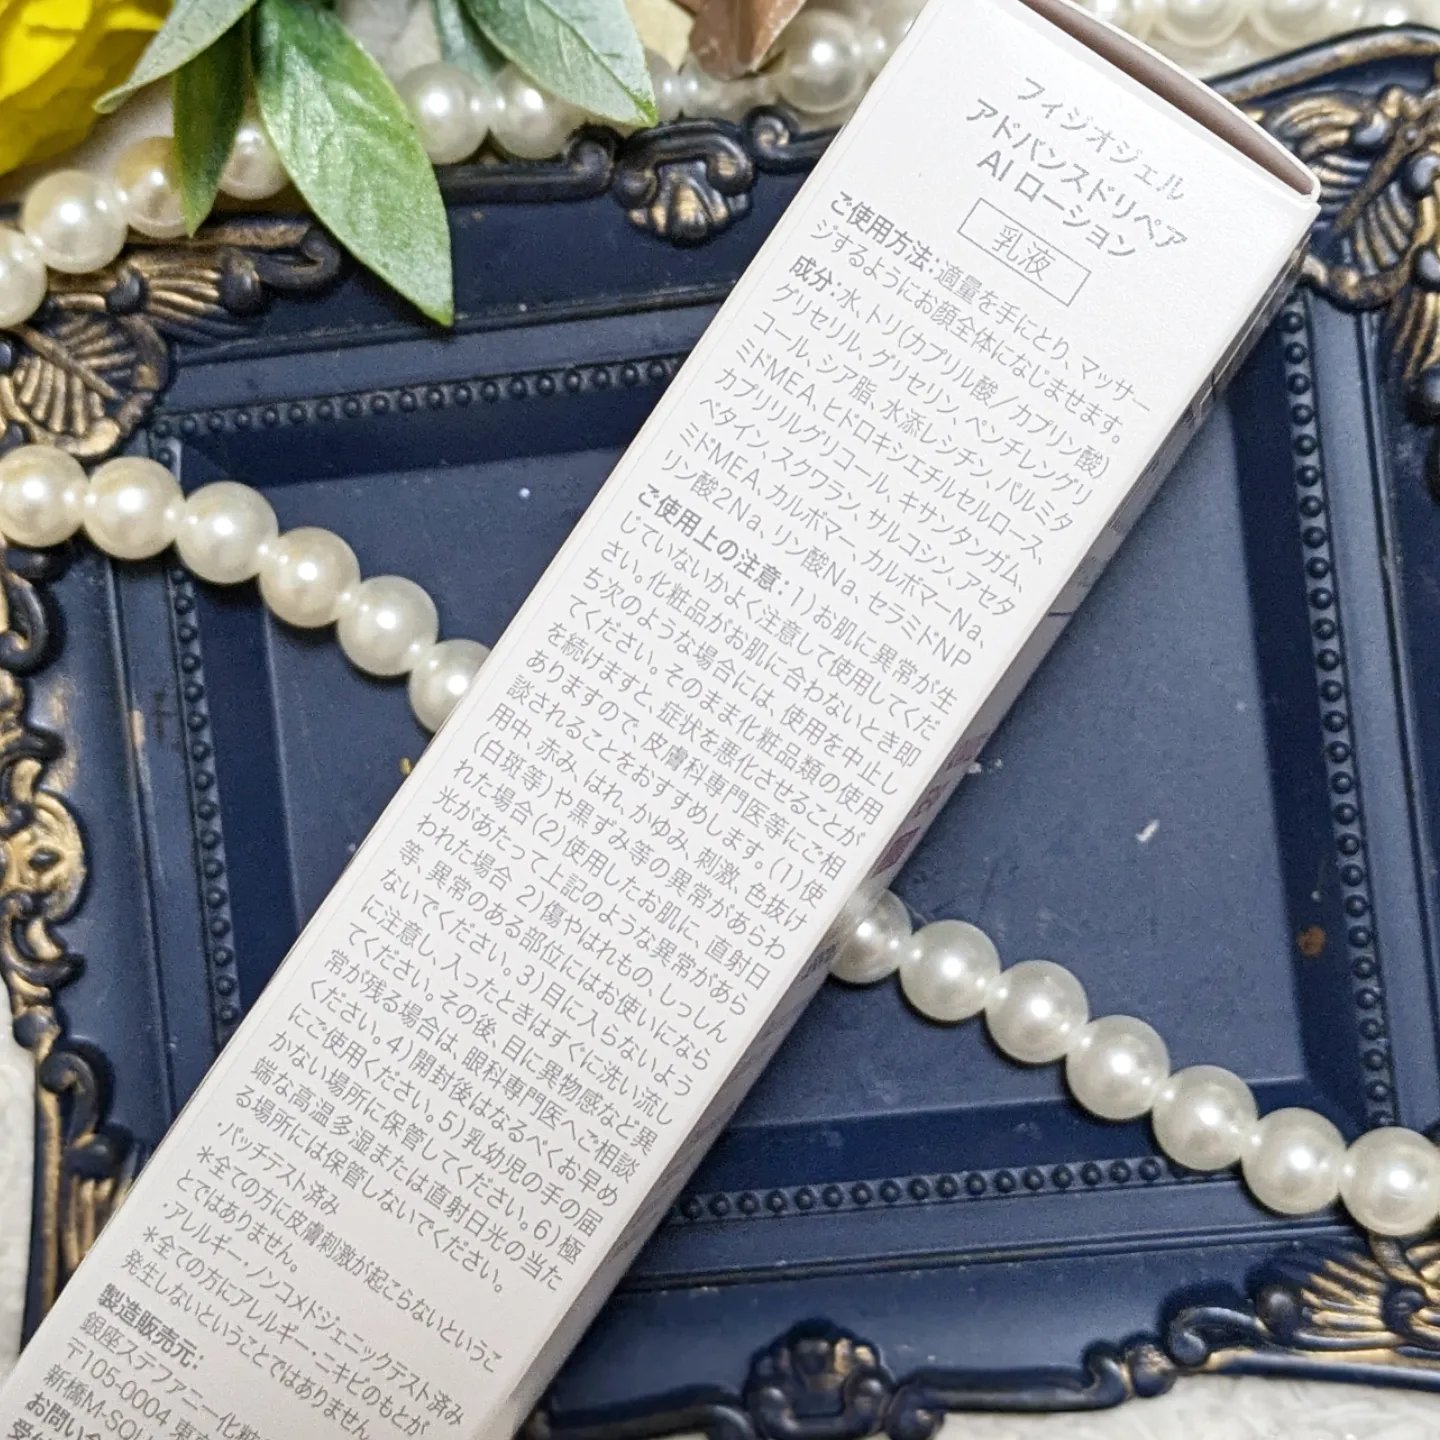 フィジオジェル
アドバンスドリペア
AI ローション
乳液
ご使用方法:適量を手にとり、マッサー
ジするようにお顔全体になじませます。
成分:水、トリ(カプリル酸/カプリン酸)
グリセリル、グリセリン、ペンチレングリ
コール、シア脂、水添レシチン、パルミタ
ミドMEA、ヒドロキシエチルセルロース、
カプリリルグリコール、キサンタンガム、
ベタイン、スクワラン、サルコシン、アセタ
ミドMEA、カルボマー、カルボマーNa、
リン酸2Na、リン酸Na、セラミドNP
ご使用上の注意:1)お肌に異常が生
じていないかよく注意して使用してくだ
さい。化粧品がお肌に合わないとき即
ち次のような場合には、使用を中止し
てください。そのまま化粧品類の使用
を続けますと、症状を悪化させることが
ありますので、皮膚科専門医等にご相
談されることをおすすめします。(1)使
用中、赤み、はれ、かゆみ、刺激、色抜け
(白斑等)や黒ずみ等の異常があらわ
れた場合(2)使用したお肌に、直射日
光があたって上記のような異常があら
われた場合 2)傷やはれもの、しっしん
等、異常のある部位にはお使いになら
ないでください。3)目に入らないよう
に注意し、入ったときはすぐに洗い流し
てください。その後、目に異物感など異
常が残る場合は、眼科専門医へご相談
ください。4)開封後はなるべくお早め
にご使用ください。5)乳幼児の手の届
かない場所に保管してください。6)極
端な高温多湿または直射日光の当た
る場所には保管しないでください。
・パッチテスト済み
*全ての方に皮膚刺激が起こらないというこ
とではありません。
・アレルギー・ノンコメドジェニックテスト済み
*全ての方にアレルギー・ニキビのもとが
発生しないということではありません。
製造販売元:
銀座ステファニー化粧
〒105-0004 東京
新橋M-SQU
お問い合
受付